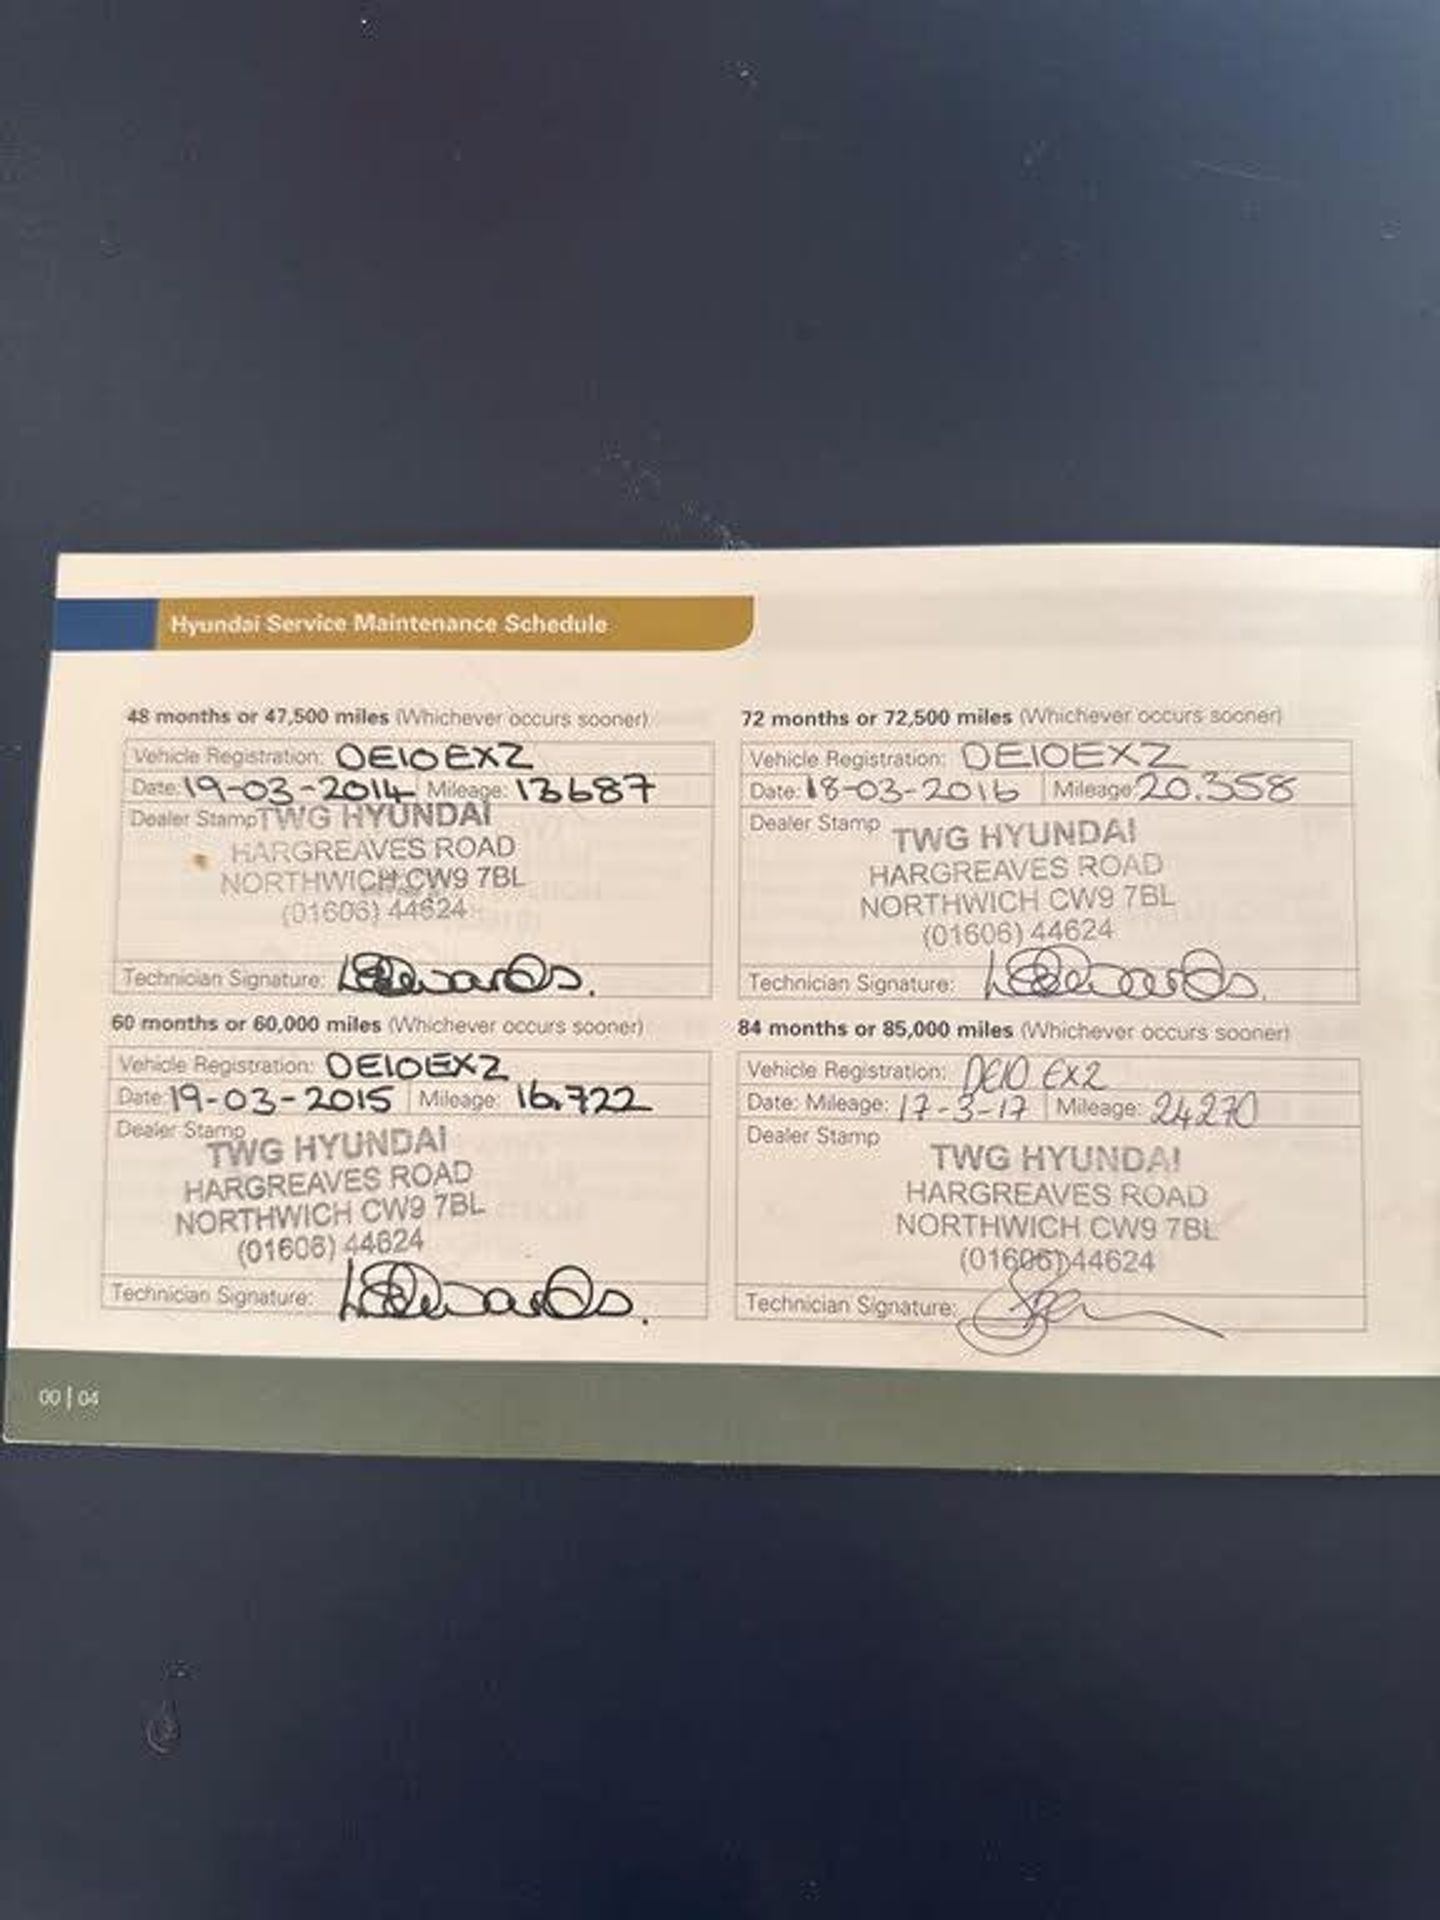 Hyundai Service Maintenance Schedule
48 months or 47,500 miles (Whichever occurs sooner)
Vehicle Registration: DE10EXZ
Date: 19-03-2014 Mileage: 13687
Dealer Stamp TWG HYUNDAI
HARGREAVES ROAD
NORTHWICH CW9 7BL
(01606) 44624
Technician Signature: L Edwards.
60 months or 60,000 miles (Whichever occurs sooner)
Vehicle Registration: DE10EXZ
Date: 19-03-2015 Mileage: 16,722
Dealer Stamp
TWG HYUNDAI
HARGREAVES ROAD
NORTHWICH CW9 7BL
(01606) 44624
Technician Signature: L Edwards.
72 months or 72,500 miles (Whichever occurs sooner)
Vehicle Registration: DE10EXZ
Date: 18-03-2016 Mileage: 20.358
Dealer Stamp
TWG HYUNDAI
HARGREAVES ROAD
NORTHWICH CW9 7BL
(01606) 44624
Technician Signature: L Edwards.
84 months or 85,000 miles (Whichever occurs sooner)
Vehicle Registration: DE10 EXZ
Date: Mileage: 17-3-17 Mileage: 24270
Dealer Stamp
TWG HYUNDAI
HARGREAVES ROAD
NORTHWICH CW9 7BL
(01606) 44624
Technician Signature:
00 | 04